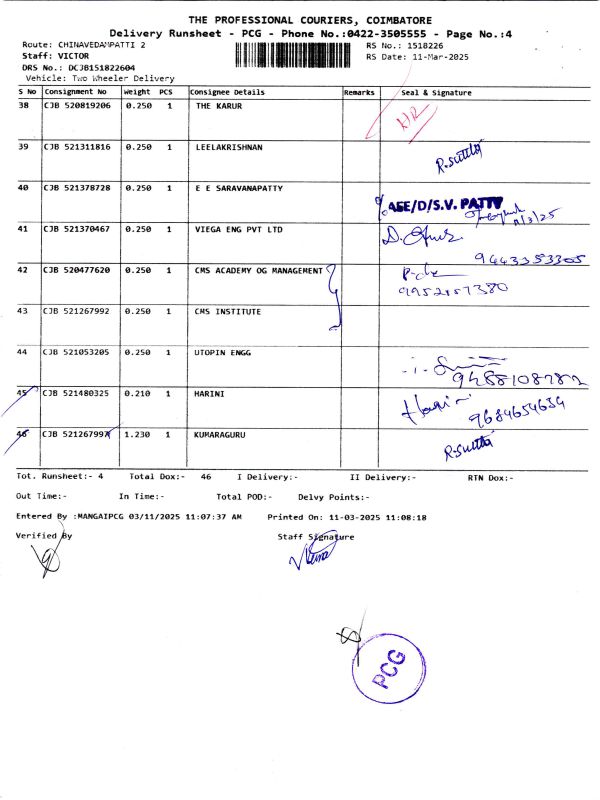 THE PROFESSIONAL COURIERS, COIMBATORE
Delivery Runsheet - PCG - Phone No.:0422-3505555 - Page No.:4
Route: CHINAVEDAMPATTI 2 RS No.: 1518226
Staff: VICTOR RS Date: 11-Mar-2025
DRS No.: DCJB151822604
Vehicle: Two Wheeler Delivery
S No Consignment No Weight PCS Consignee Details Remarks Seal & Signature
38 CJB 520819206 0.250 1 THE KARUR
39 CJB 521311816 0.250 1 LEELAKRISHNAN
40 CJB 521378728 0.250 1 E E SARAVANAPATTY AEE/D/S.V. PATTY 11/3/25
41 CJB 521370467 0.250 1 VIEGA ENG PVT LTD 9443353305
42 CJB 520477620 0.250 1 CMS ACADEMY OG MANAGEMENT
43 CJB 521267992 0.250 1 CMS INSTITUTE
44 CJB 521053205 0.250 1 UTOPIN ENGG
45 CJB 521480325 0.210 1 HARINI Harini 9684654634
46 CJB 521267997 1.230 1 KUMARAGURU
Tot. Runsheet:- 4 Total Dox:- 46 I Delivery:- II Delivery:- RTN Dox:-
Out Time:- In Time:- Total POD:- Delvy Points:-
Entered By :MANGAIPCG 03/11/2025 11:07:37 AM Printed On: 11-03-2025 11:08:18
Verified By Staff Signature
PCG